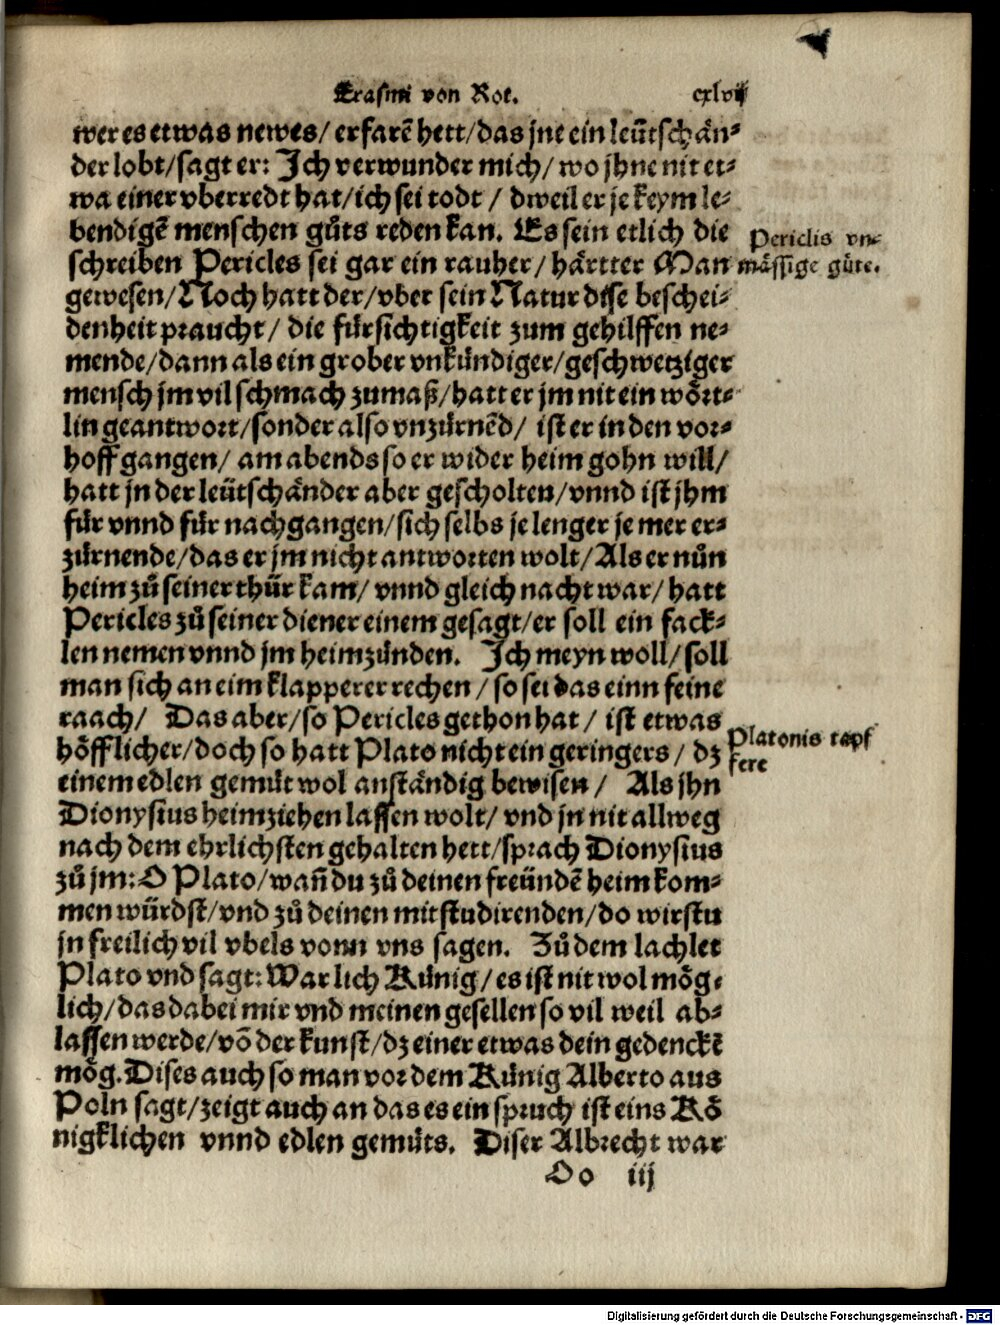 Erasmi von Rot. cxlvij
wer es etwas newes/ erfarẽ hett/das jne ein leütschän⸗
der lobt/sagt er: Jch verwunder mich/ wo jhne nit et⸗
wa einer vberredt hat/ich sei todt / dweil er je keym le⸗
bendigẽ menschen gůts reden kan. Es sein etlich die
schreiben Pericles sei gar ein rauher/ härtter Man
gewesen/Noch hatt der/vber sein Natur dise beschei⸗
denheit praucht/ die fürsichtigkeit zum gehilffen ne⸗
mende/dann als ein grober vnkündiger/geschwetziger
mensch jm vil schmach zumaß/hatt er jm nit ein wört⸗
lin geantwort/sonder also vnzürnẽd/ ist er in den vor⸗
hoff gangen/ am abends so er wider heim gohn will/
hatt jn der leütschänder aber gescholten/vnnd ist jhm
für vnnd für nachgangen/sich selbs je lenger je mer er⸗
zürnende/das er jm nicht antworten wolt/Als er nůn
heim zů seiner thür kam/ vnnd gleich nacht war/ hatt
Pericles zů seiner diener einem gesagt/er soll ein fack⸗
len nemen vnnd jm heimzünden. Jch meyn woll/soll
man sich an eim klapperer rechen /so sei das einn feine
raach/ Das aber/so Pericles gethon hat/ ist etwas
höfflicher/doch so hatt Plato nicht ein geringers/ dz
einem edlen gemüt wol anständig bewisen/ Als jhn
Dionysius heimziehen lassen wolt/ vnd jn nit allweg
nach dem ehrlichsten gehalten hett/sprach Dionysius
zů jm: O Plato/wañ du zů deinen freündẽ heim kom⸗
men würdst/vnd zů deinen mitstudirenden/do wirstu
jn freilich vil vbels vonn vns sagen. Zů dem lachlet
Plato vnd sagt: Warlich Künig/es ist nit wol mög⸗
lich/das dabei mir vnd meinen gesellen so vil weil ab⸗
lassen werde/võ der kunst/dz einer etwas dein gedenckẽ
mög. Dises auch so man vor dem Künig Alberto aus
Poln sagt/zeigt auch an das es ein spruch ist eins Kö
nigklichen vnnd edlen gemüts. Diser Albrecht war
Oo iij
Periclis vn⸗
mässige güte.
Platonis tapf
fere
Digitalisierung gefördert durch die Deutsche Forschungsgemeinschaft - DFG